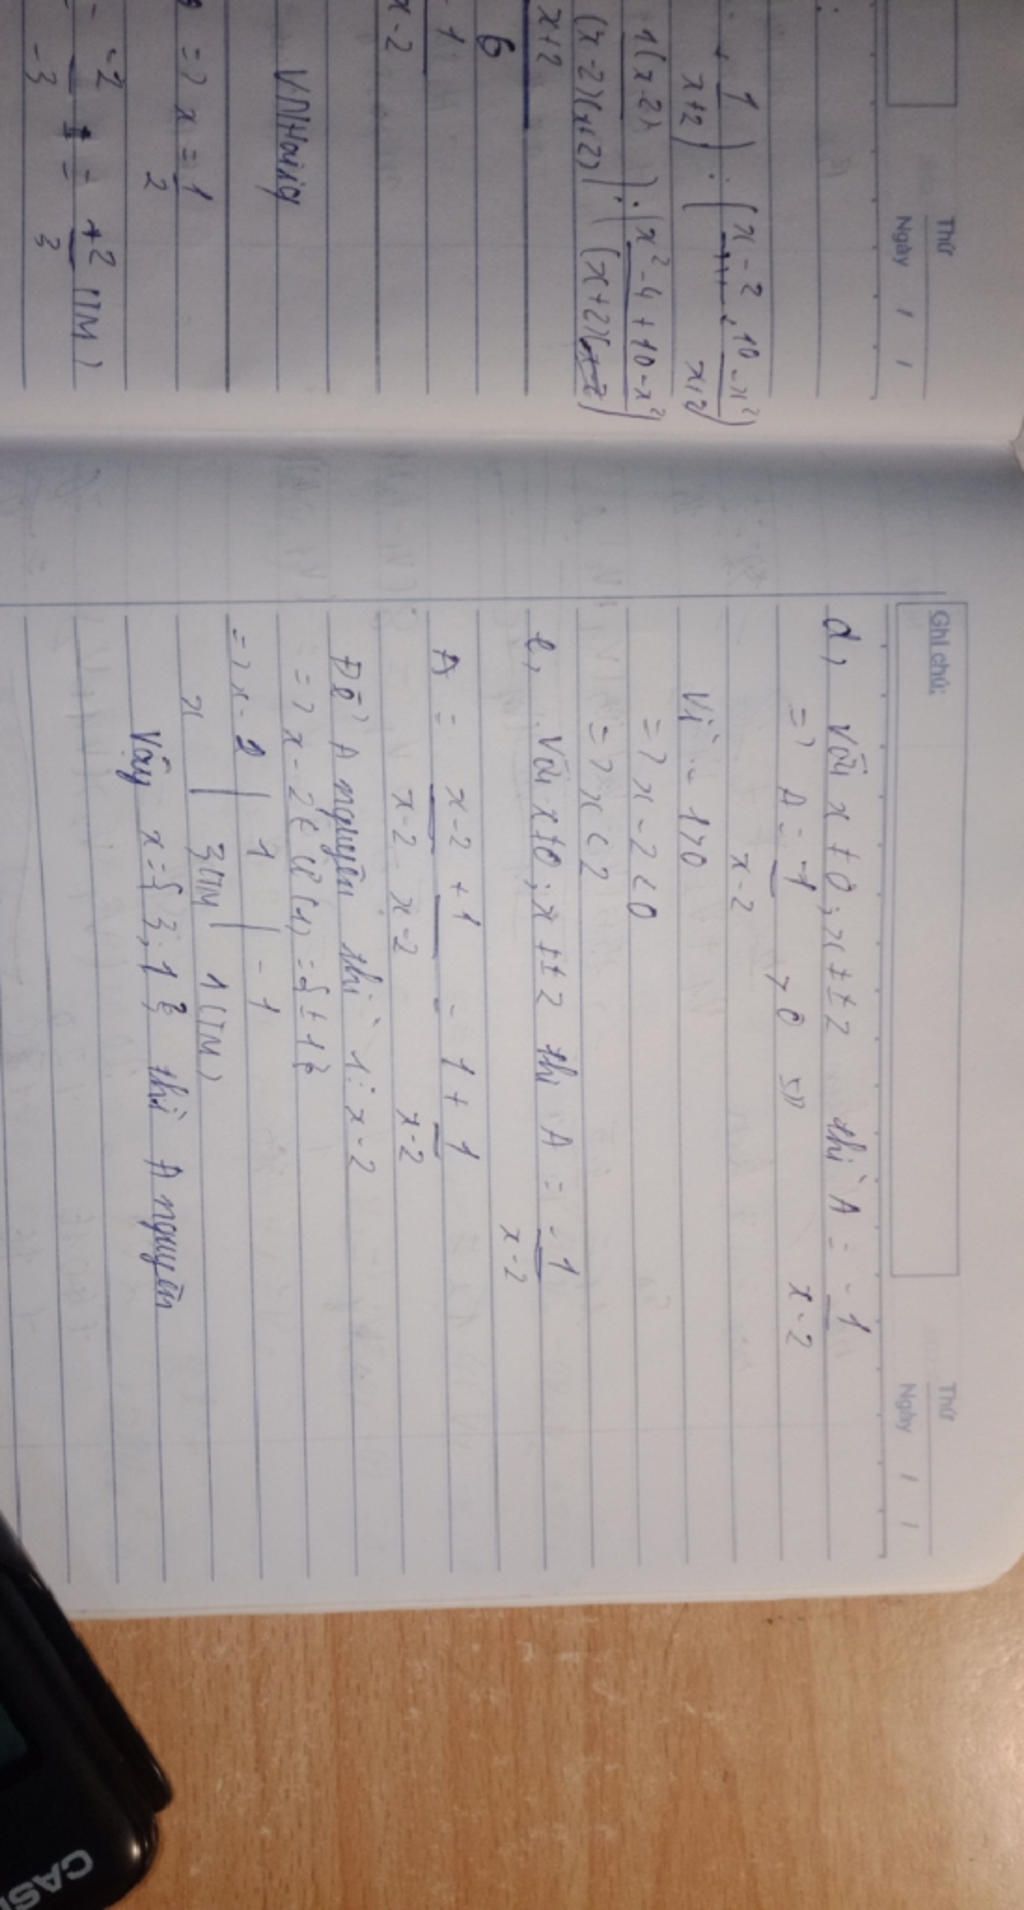 Thứ
Ngày / /
+ 1/(x+2)) : (x-2 + (10-x²)/(x+2))
1(x-2)/((x-2)(x+2))) : (x²-4+10-x²)/(x+2)
x+2
6
1
x-2
=> x = 1/2
-2/-3 = +2/3 (TM)
Ghi chú:
Thứ
Ngày / /
d, Với x ≠ 0; x ≠ ±2 thì A = -1/(x-2)
=> A = -1/(x-2) > 0
Vì -1>0
=> x-2 < 0
=> x < 2
e, Với x ≠ 0; x ≠ ±2 thì A = -1/(x-2)
A = (x-2)/(x-2) + 1/(x-2) = 1 + 1/(x-2)
Để A nguyên thì 1 ⋮ x-2
=> x-2 ∈ Ư(1) = {±1}
=> x-2 | 1 | -1
x | 3(TM | 1(TM)
Vậy x = {3; 1} thì A nguyên
CASI